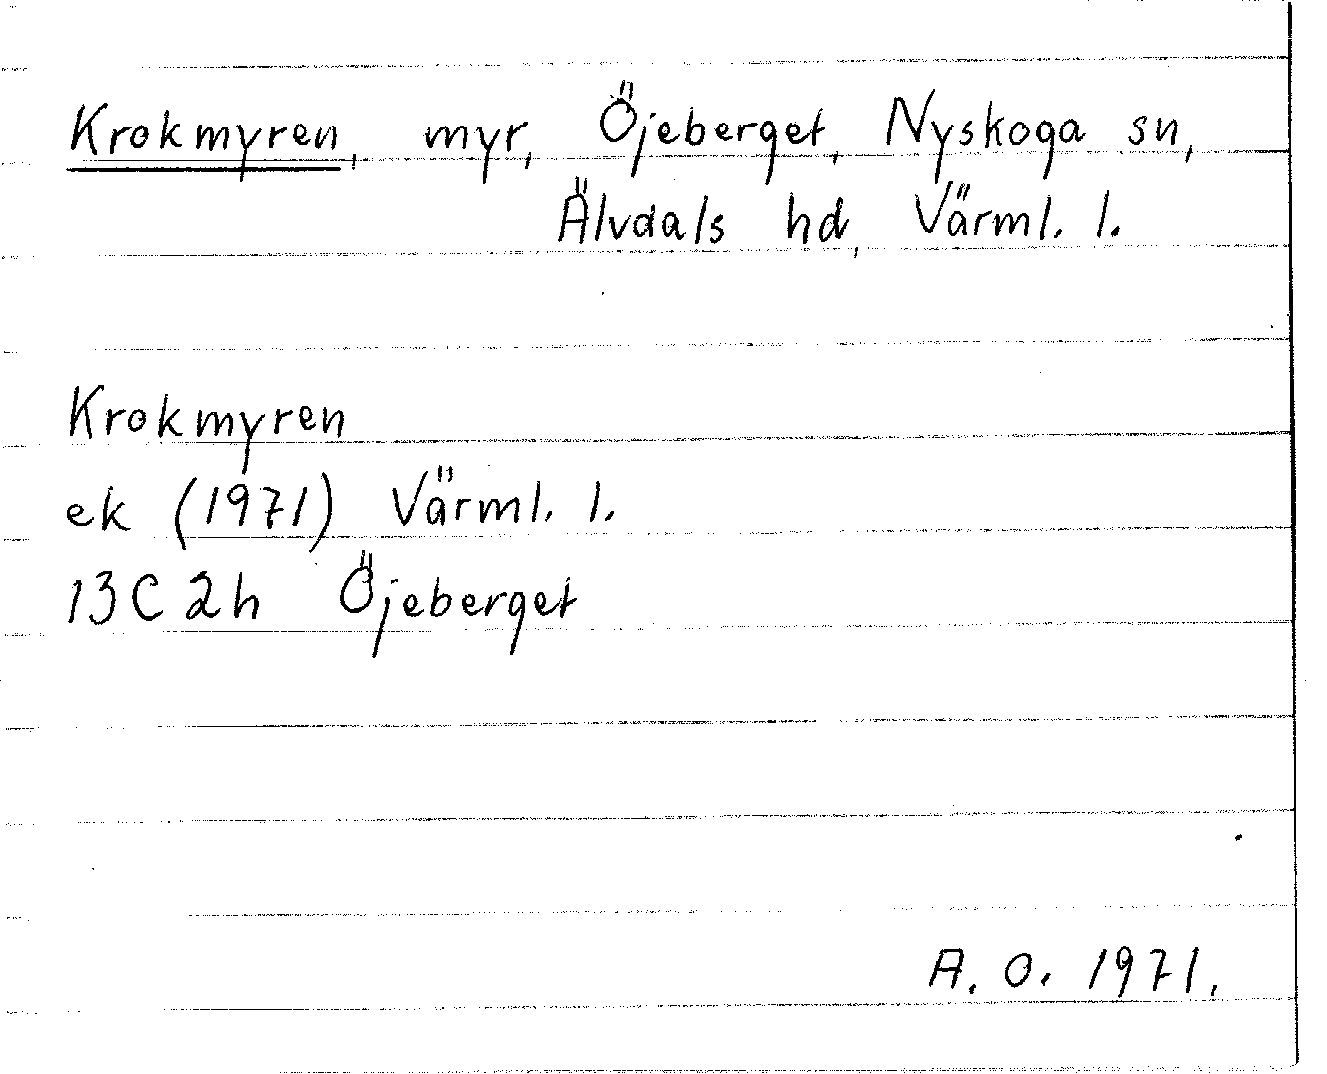 Krokmyren, myr, Öjeberget, Nyskoga sn,
Älvdals hd, Värml. l.
Krokmyren
ek (1971) Värml. l.
13C 2h Öjeberget
A. O. 1971.